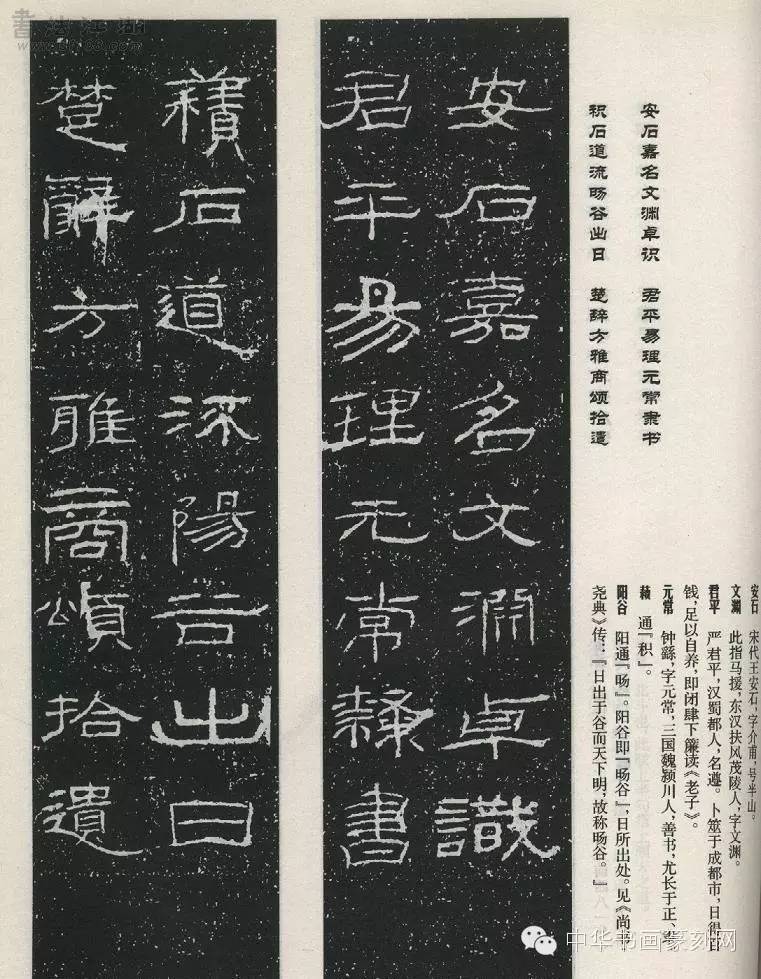 安石嘉名文渊卓识　君平易理元常隶书
积石道流旸谷出日　楚辞方雅商颂拾遗
安石　宋代王安石，字介甫，号半山。
文渊　此指马援，东汉扶风茂陵人，字文渊。
君平　严君平，汉蜀都人，名遵。卜筮于成都市，日得百
钱，足以自养，即闭肆下簾读《老子》。
元常　钟繇，字元常，三国魏颍川人，善书，尤长于正、隶
藉　通『积』。
阳谷　阳通『旸』。阳谷即『旸谷』，日所出处。见《尚书
尧典》传：『日出于谷而天下明，故称旸谷。』
安石嘉名文淵卓識
君平易理元常隸書
藉石道流陽谷出日
楚辭方雅商頌拾遺
書法江湖
中华书画篆刻网